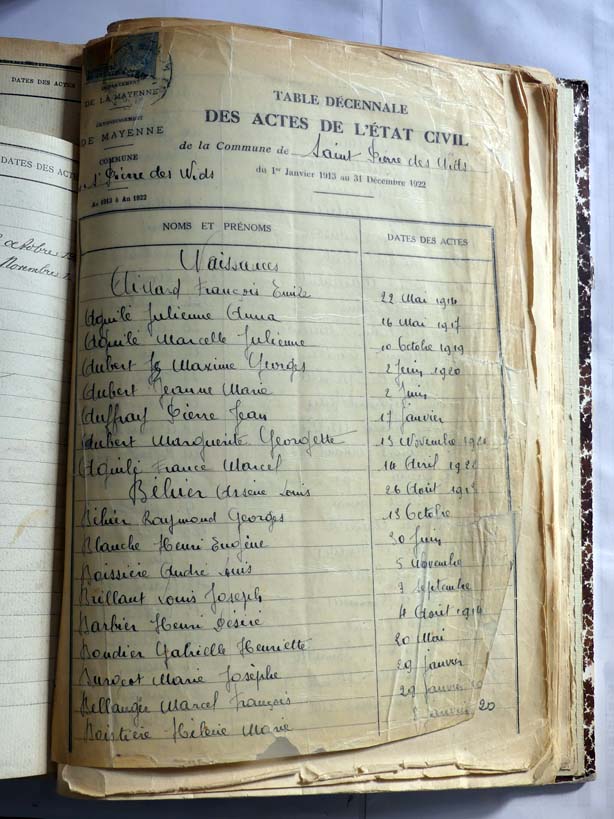 DATES DES ACTES
DATES DES ACTES
octobre
Novembre
DÉPARTEMENT
DE LA MAYENNE
ARRONDISSEMENT
DE MAYENNE
COMMUNE
St Pierre des Nids
An 1913 à An 1922
TABLE DÉCENNALE
DES ACTES DE L'ÉTAT CIVIL
de la Commune de Saint Pierre des Nids
du 1er Janvier 1913 au 31 Décembre 1922
NOMS ET PRÉNOMS DATES DES ACTES
Naissances
François Emile 22 Mai
Aquilé Julienne Anna 16 Mai 1917
Aquilé Marcelle Julienne 10 Octobre 1919
Aubert Maxime Georges 2 Juin 1920
Aubert Jeanne Marie 2 Juin
Auffray Pierre Jean 17 Janvier
Aubert Marguerite Georgette Novembre
Aquilé France Marcel 14 Avril
Béhier Arsène Louis 26 Août
Béhier Raymond Georges Octobre
Blanche Henri Eugène 30 Juin
Boissière André Louis 5 Novembre
Brillant Louis Joseph Septembre
Barbier Henri Désiré 4 Août 1914
Boudier Gabrielle Henriette 20 Mai
Marie Josèphe 29 Janvier
Bellanger Marcel François 29 Janvier
Marie Janvier 20